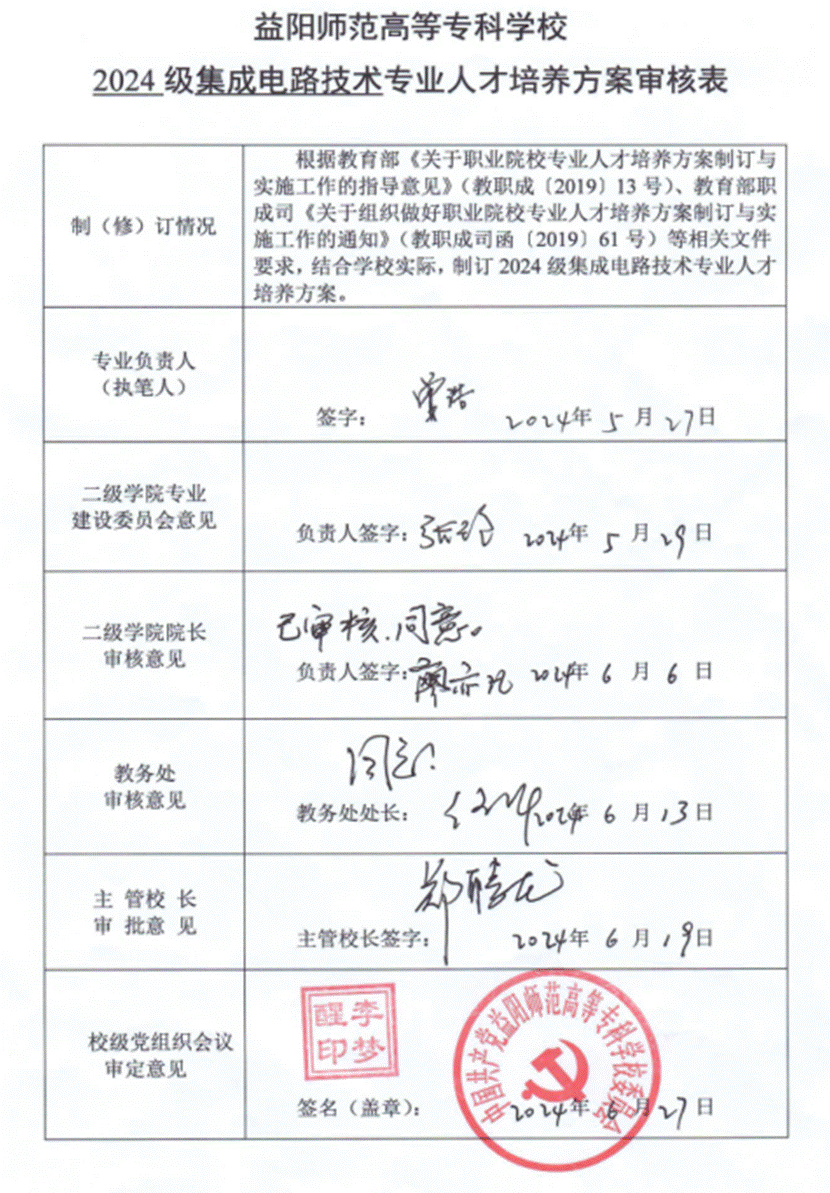 益阳师范高等专科学校
2024级集成电路技术专业人才培养方案审核表
制（修）订情况
根据教育部《关于职业院校专业人才培养方案制订与
实施工作的指导意见》（教职成〔2019〕13号）、教育部职
成司《关于组织做好职业院校专业人才培养方案制订与实
施工作的通知》（教职成司函〔2019〕61号）等相关文件
要求，结合学校实际，制订2024级集成电路技术专业人才
培养方案。
专业负责人
（执笔人）
签字： 2024年 5 月 27日
二级学院专业
建设委员会意见
负责人签字： 2024年 5 月 29日
二级学院院长
审核意见
已审核、同意。
负责人签字：廖亦凡 2024年 6 月 6 日
教务处
审核意见
同意.
教务处处长： 2024年 6 月 13日
主 管校 长
审 批意 见
郑腾龙
主管校长签字： 2024年 6 月 19日
校级党组织会议
审定意见
李梦醒印
中国共产党益阳师范高等专科学校委员会
签名（盖章）： 2024年 6 月 27日